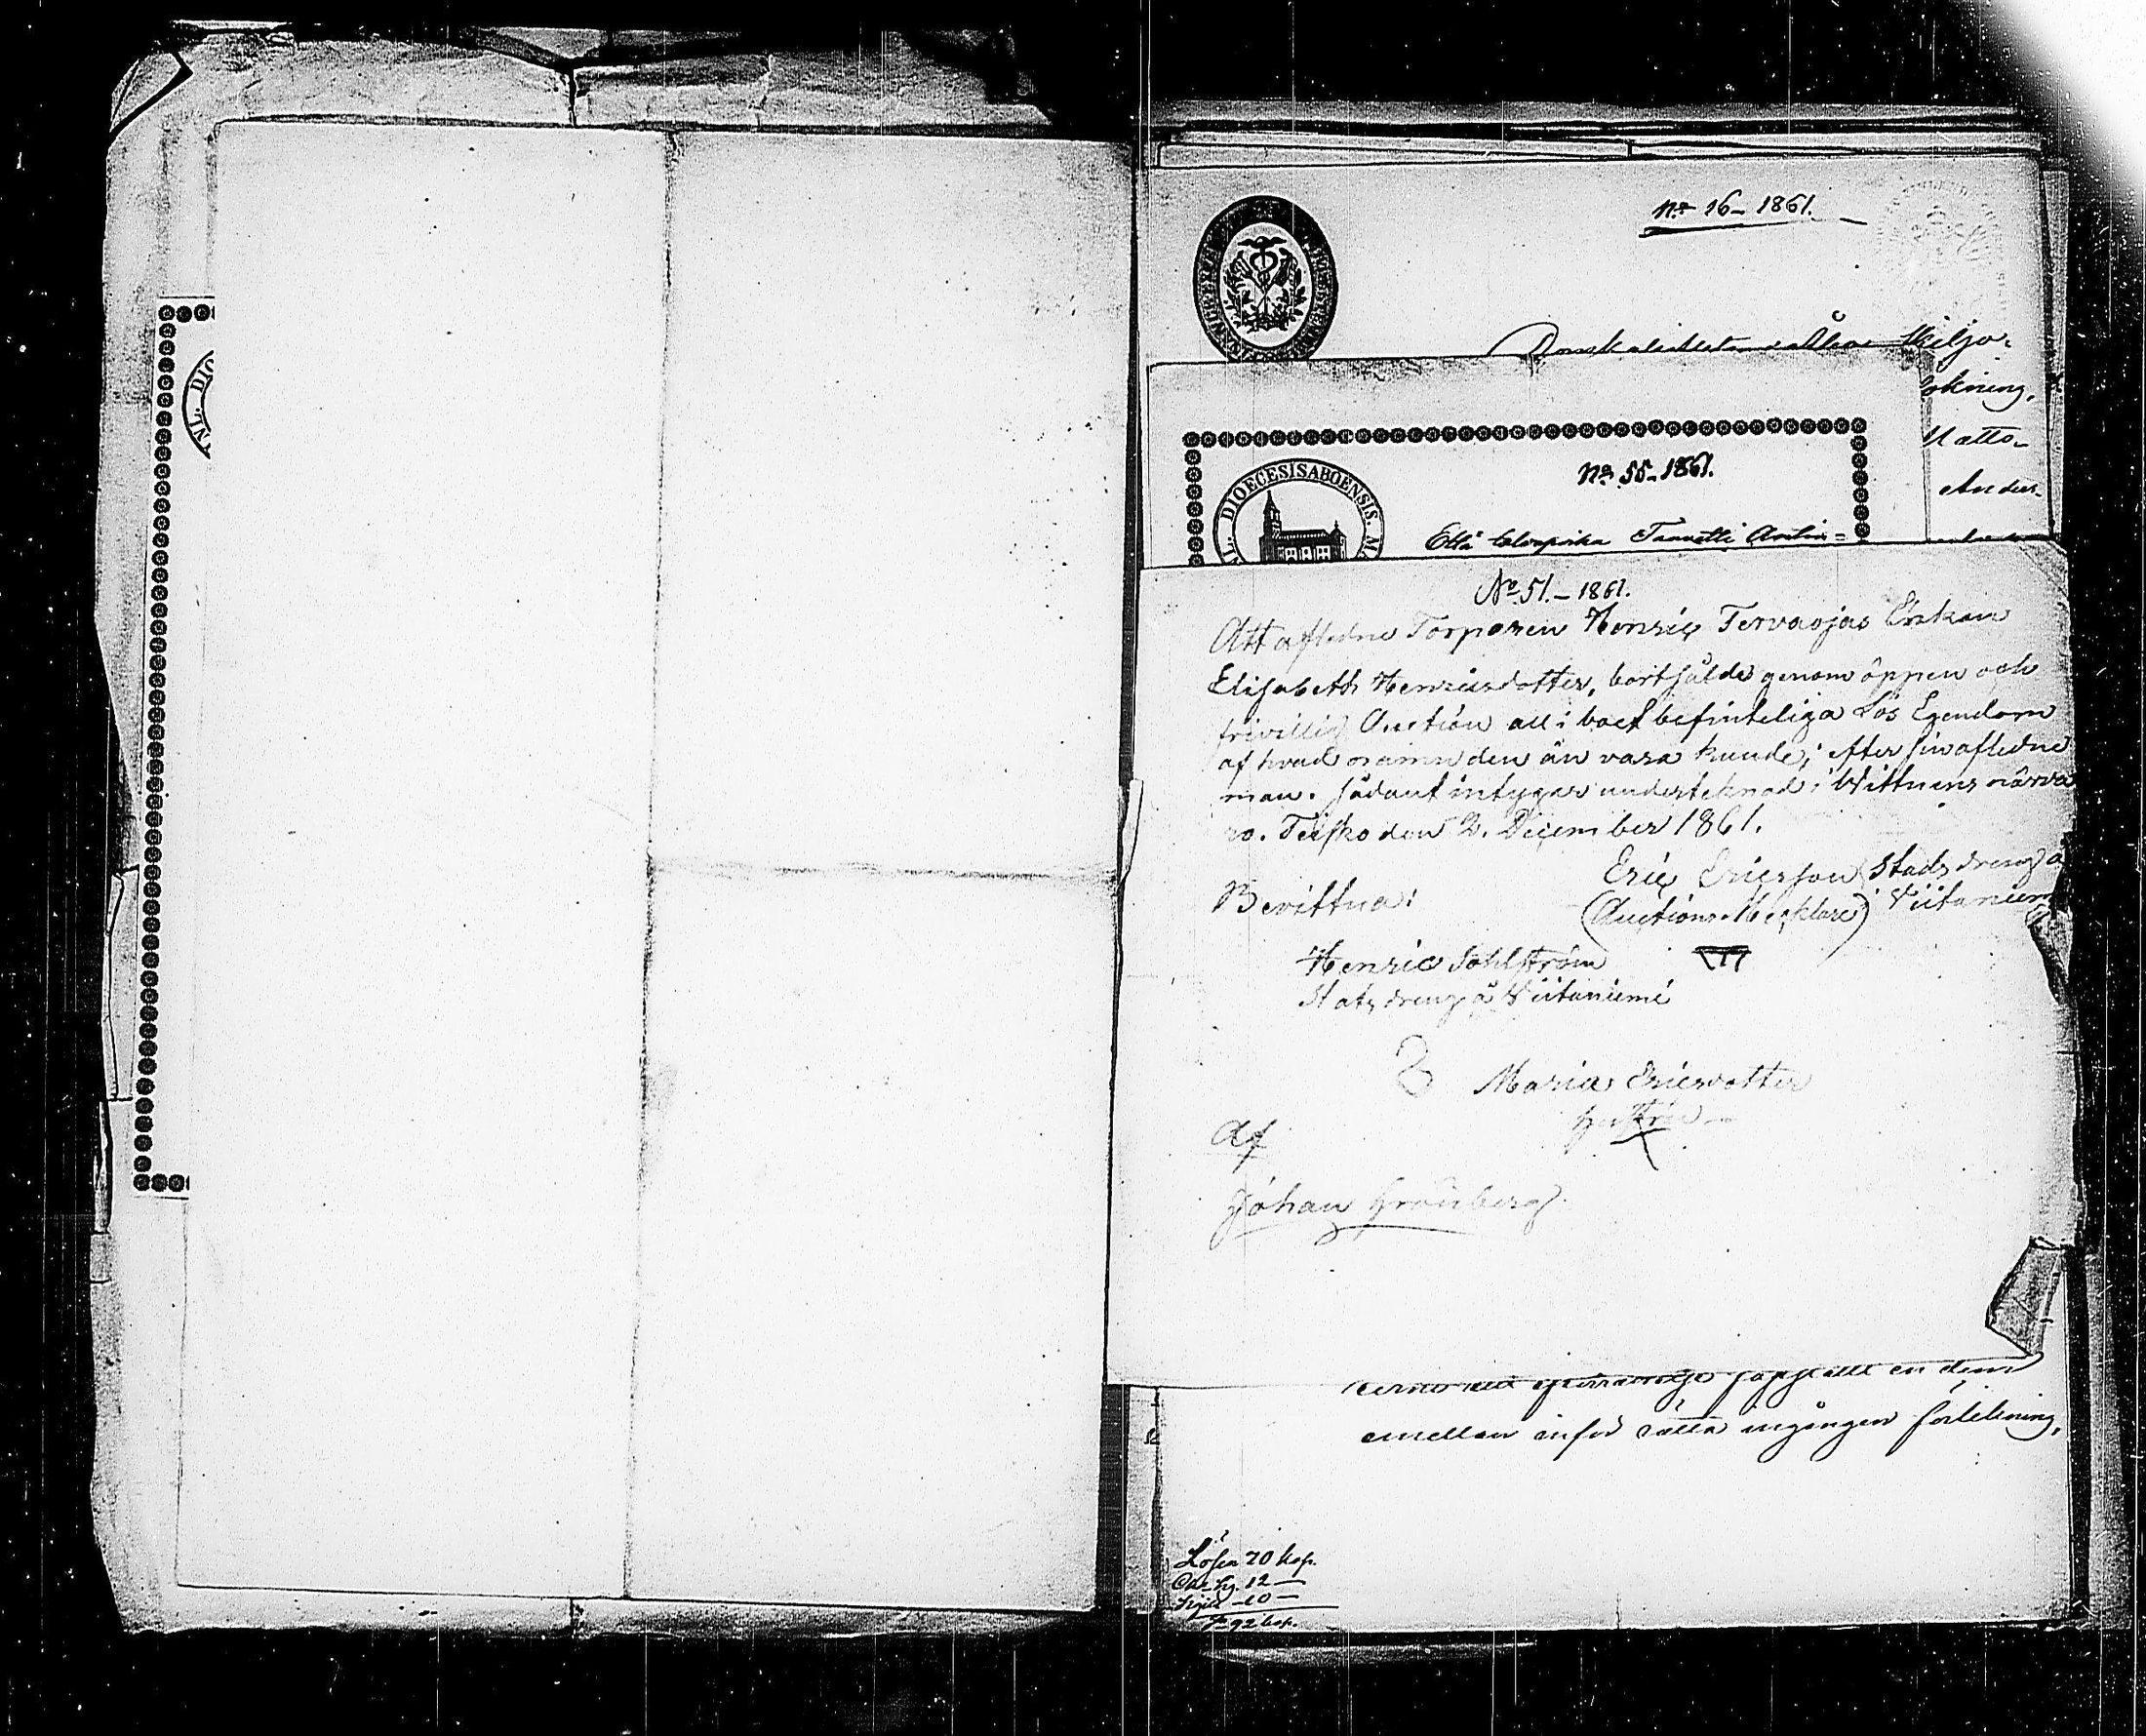 No 16 – 1861.
Domkapitlet i Åbo Skiljo-
Matto-
Anders-
DIOECESIS ABOENSIS.
No 55 – 1861.
Että Taavetti
No 51. – 1861.
Att aflidne Torparen Henric Tervaojas Enkan
Elisabeth Henricsdotter, bortsålde genom öppen och
frivillig Auction all i boet befinteliga Lös Egendom
af hvad namn den än vara kunde; efter sin aflidne
man. Sådant intygar undertecknad i Wittnens närva
ro. Teisko den 2. December 1861.
Eric Ericsson Stads dreng å
Bevittna:
(Auctions Mecklare) Viitaniemi
Henric Sohlström
Stats dreng å Viitaniemi
Maria Ericsdotter
Hustru
Af
Johan Grönberg
emellan inför rätta ingången förlikning,
Lösen 70 kop.
12 –
10 –
92 kop.